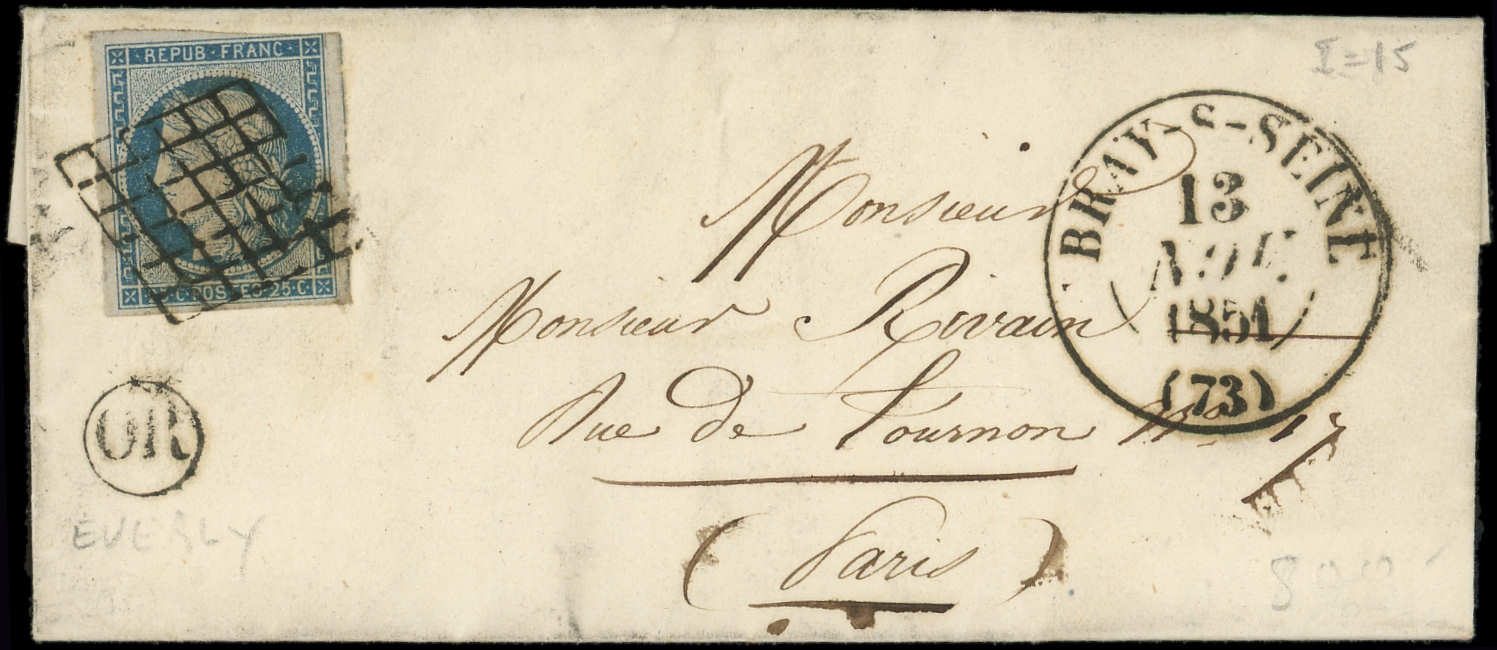 REPUB · FRANC ·
25 · C · POSTES · 25 · C ·
I=15
BRAY-S-SEINE
13
NOV.
1851
(73)
Monsieur
Monsieur Rivain
Rue de Tournon N° 17
(Paris)
OR
EVERLY